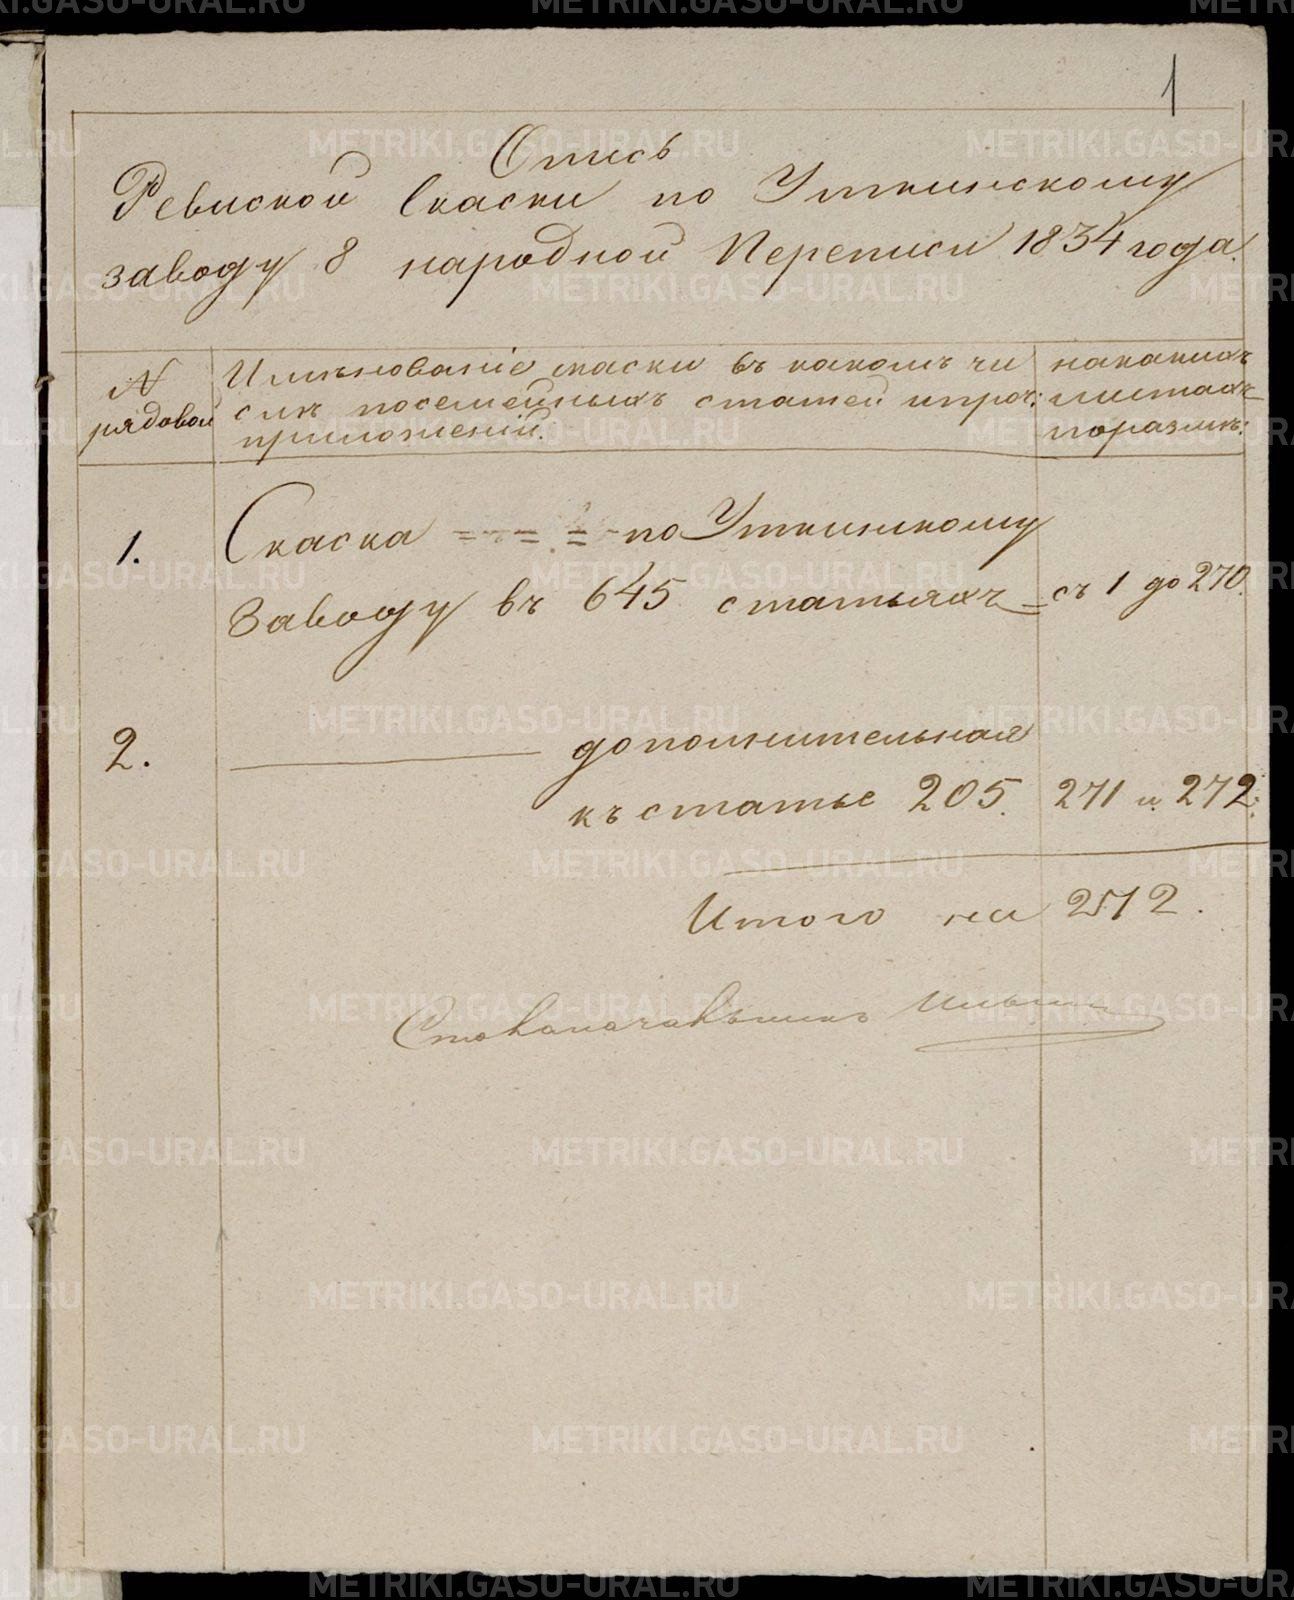 1
Опись
Ревиской Скаски по Уткинскому
заводу 8 народной Переписи 1834 года.
N
рядовой
Имѣнованіе скаски въ какомъ чи
слѣ посемейныхъ статей и проч:
приложеній.
на какихъ
листахъ
по разлик:
1.
Скаска по Уткинскому
Заводу въ 645 статьяхъ
съ 1 до 270.
2.
дополнительная
къ статье 205.
271 и 272.
Итого на 272.
Столоначальникъ Ильин
METRIKI.GASO-URAL.RU